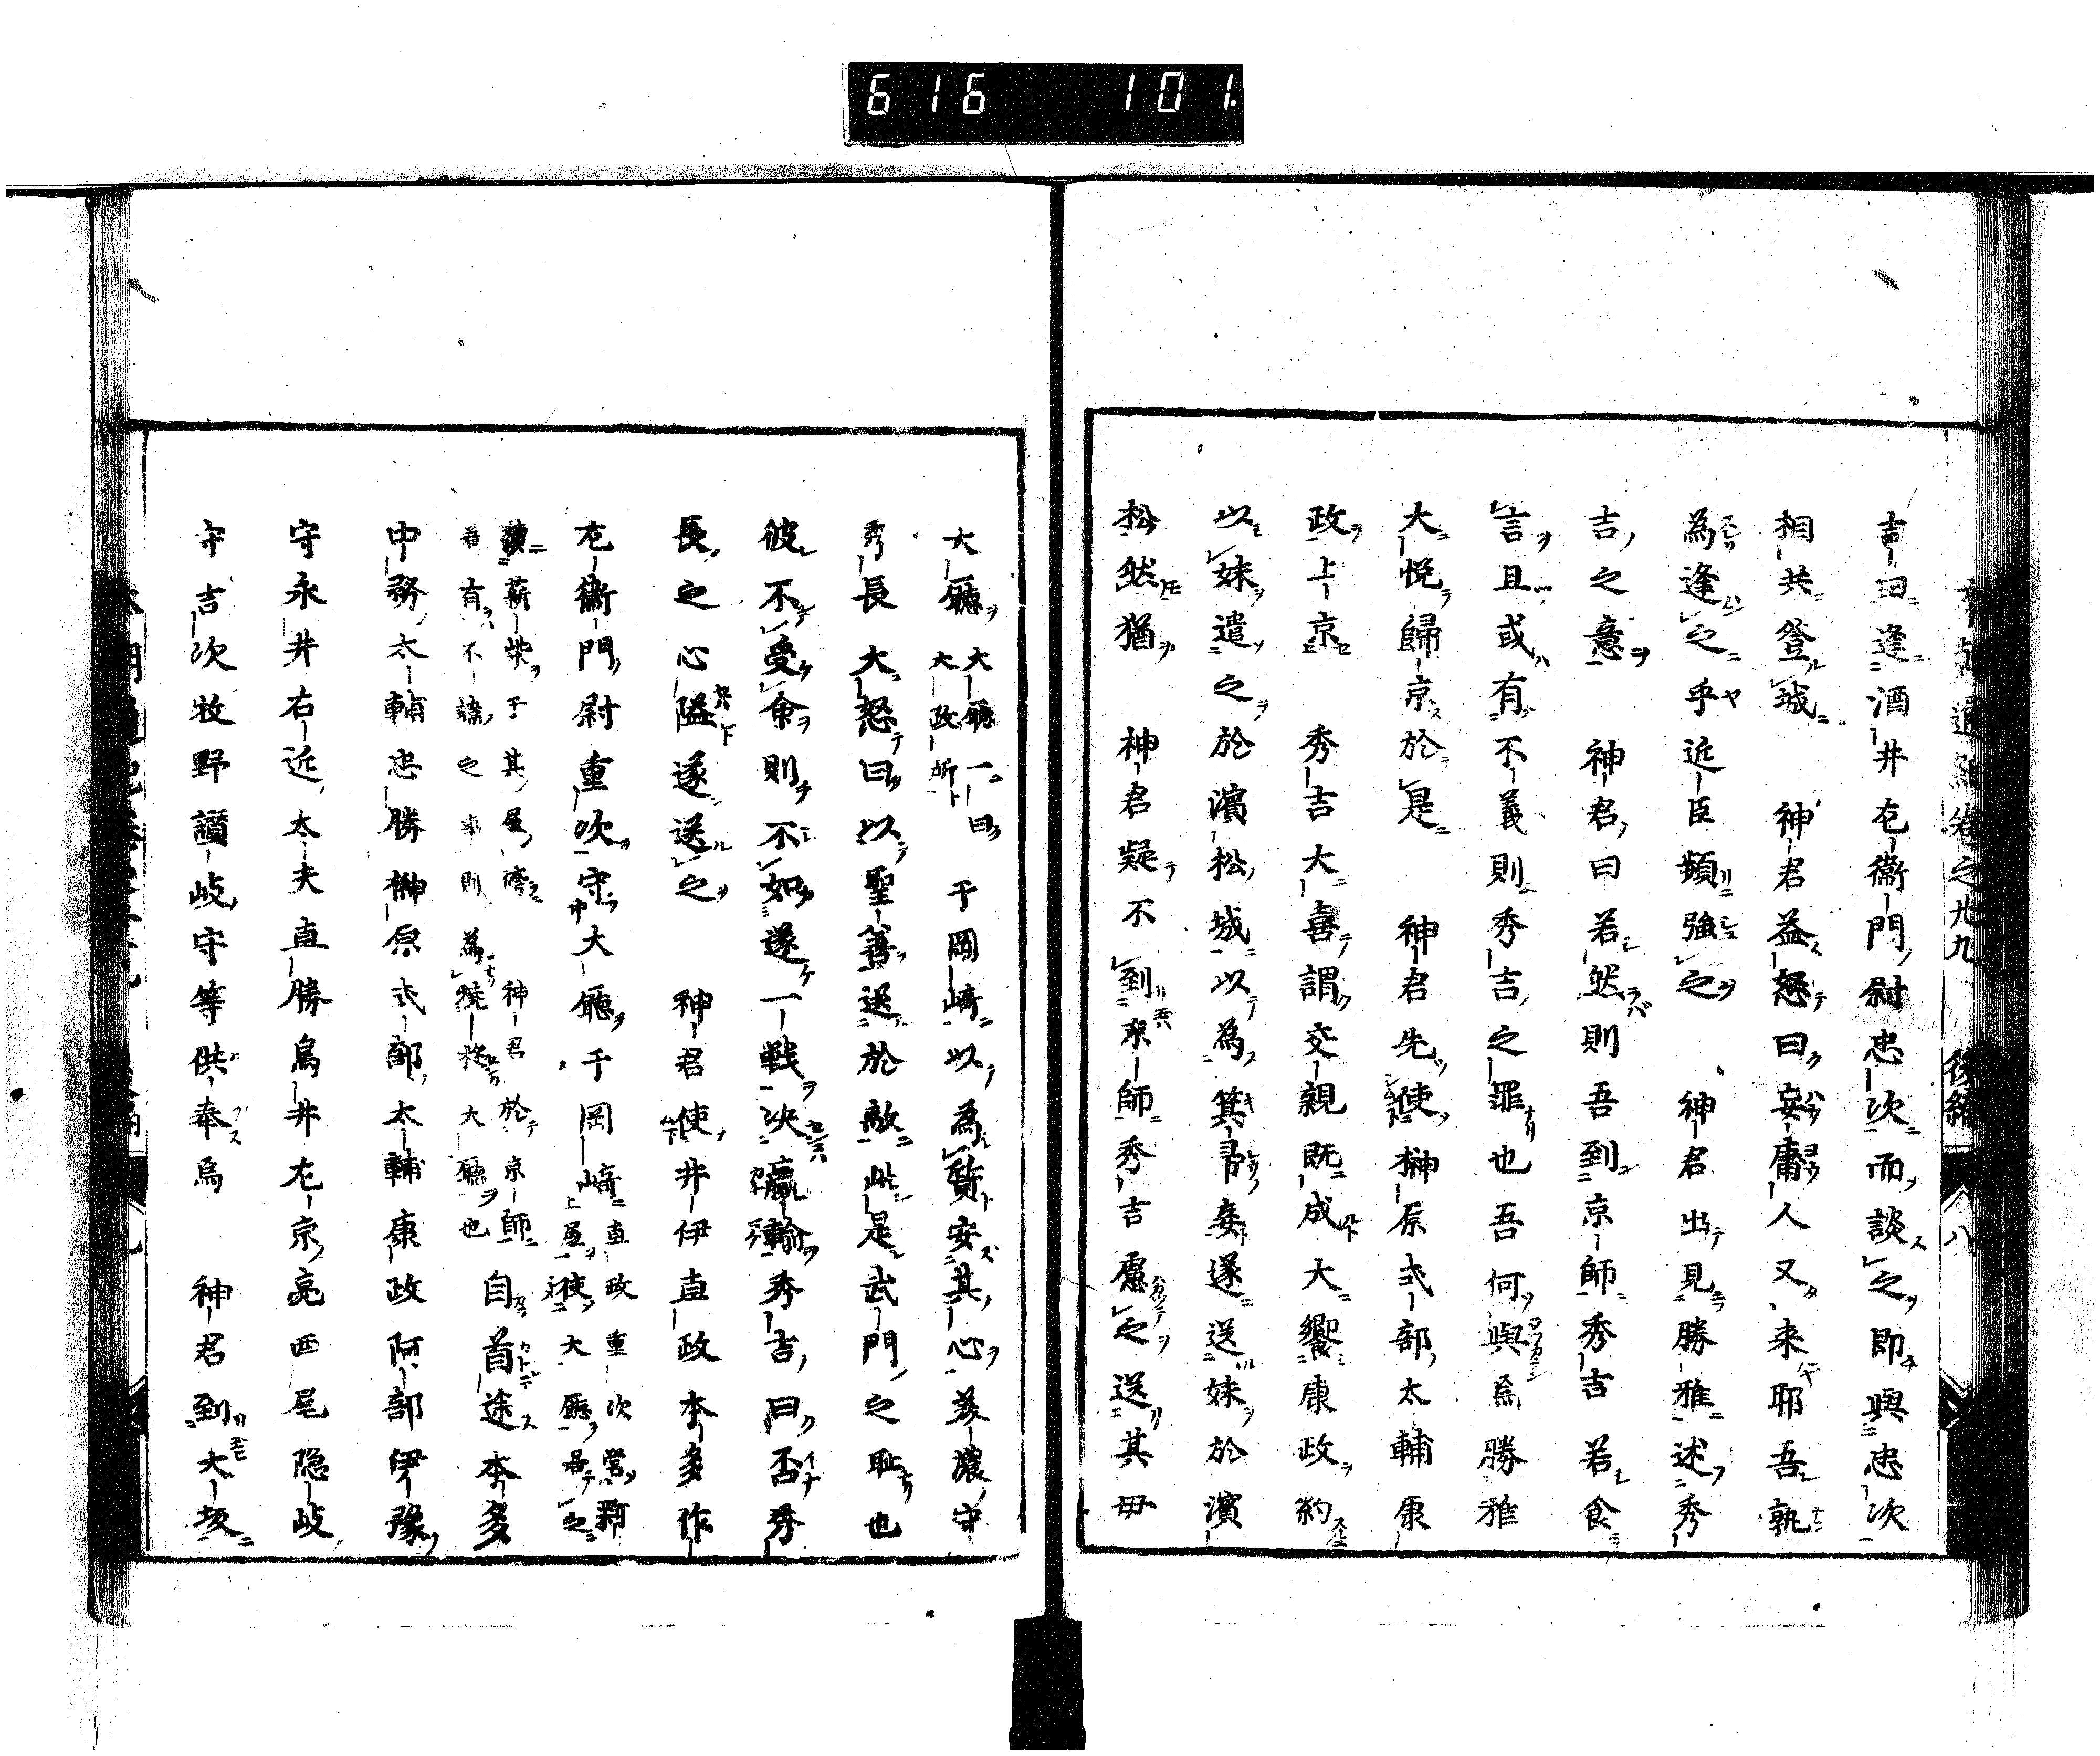 616 101.
本朝通紀卷之廿九 後編 八
吉田逢酒井左衞門尉忠次而談之即與忠次
相共登城 神君益怒曰妄庸人又来耶吾孰
為逢之乎近臣頻強之 神君出見勝雅述秀
吉之意 神君曰若然則吾到京師秀吉若食
言且或有不義則秀吉之罪也吾何與焉勝雅
大悦歸京於是 神君先使榊原式部太輔康
政上京 秀吉大喜謂交親既成大饗康政約
以妹遣之於濵松城以為箕帚妾遂送妹於濵
松然猶 神君疑不到京師秀吉慮之送其母
大廳大廳一曰大政所 于岡﨑以為質安其心美濃守
秀長大怒曰以聖善送於敵此是武門之耻也
彼不受命則不如遂一戦决贏輸秀吉曰否秀
長之心隘遂送之 神君使井伊直政本多作
左衞門尉重次守大廳于岡﨑直政重次営新上屋使大廳居之
積薪柴于其屋傍 神君於京師若有不諱之事則為焼殺大廳也自首途本多
中務太輔忠勝榊原式部太輔康政阿部伊豫
守永井右近太夫直勝鳥井左京亮西尾隠岐
守吉次牧野讃岐守等供奉焉 神君到大坂